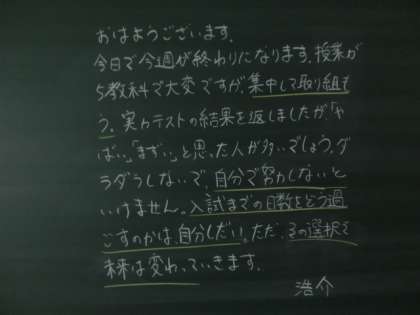 おはようございます。
今日で今週が終わりになります。授業が
5教科で大変ですが、集中して取り組も
う。実力テストの結果を返しましたが、「や
ばい」「まずい」と思った人が多いでしょう。ダ
ラダラしないで、自分で努力しないと
いけません。入試までの日数をどう過
ごすのかは、自分しだい。ただ、その選択で
未来は変わっていきます。
浩介